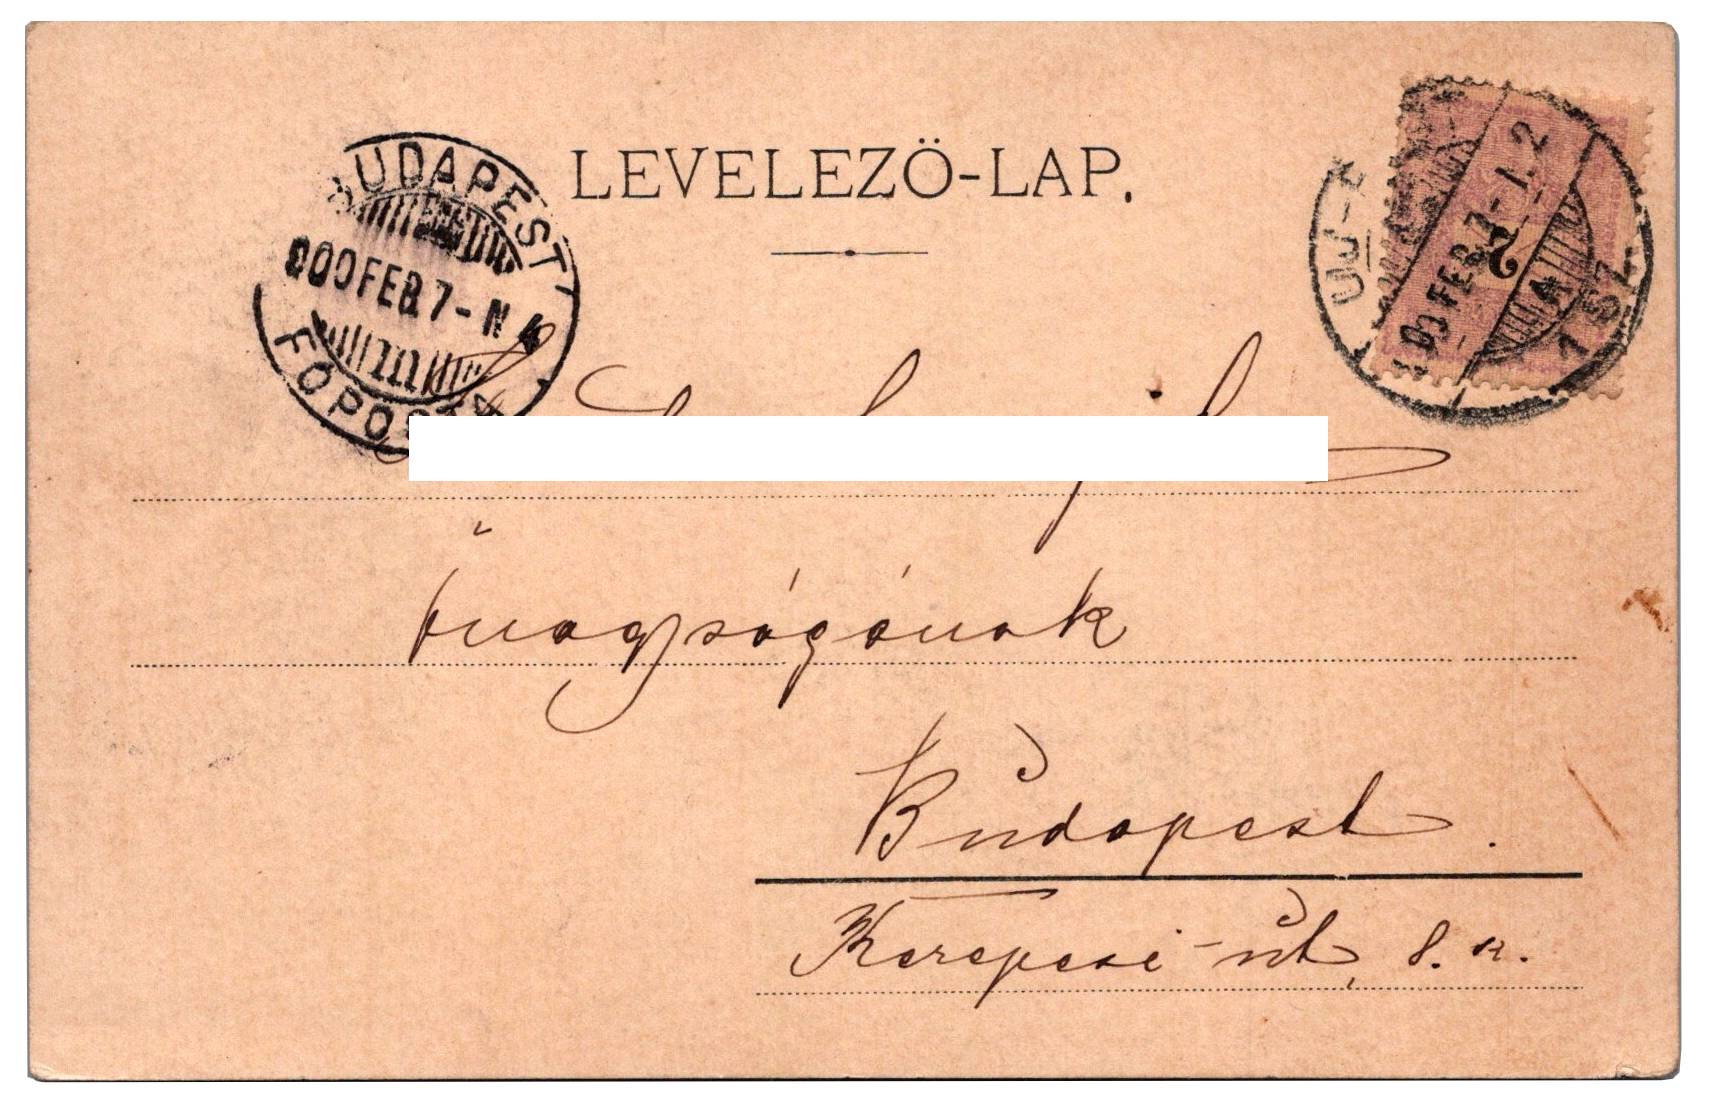 LEVELEZÖ-LAP.
BUDAPEST
900 FEB 7-N
FŐPOSTA
UJ-
900 FEB. 7-1. 2
2
A
1 SZ.
őnagyságának
Budapest.
Kerepesi-út, 8. sz.